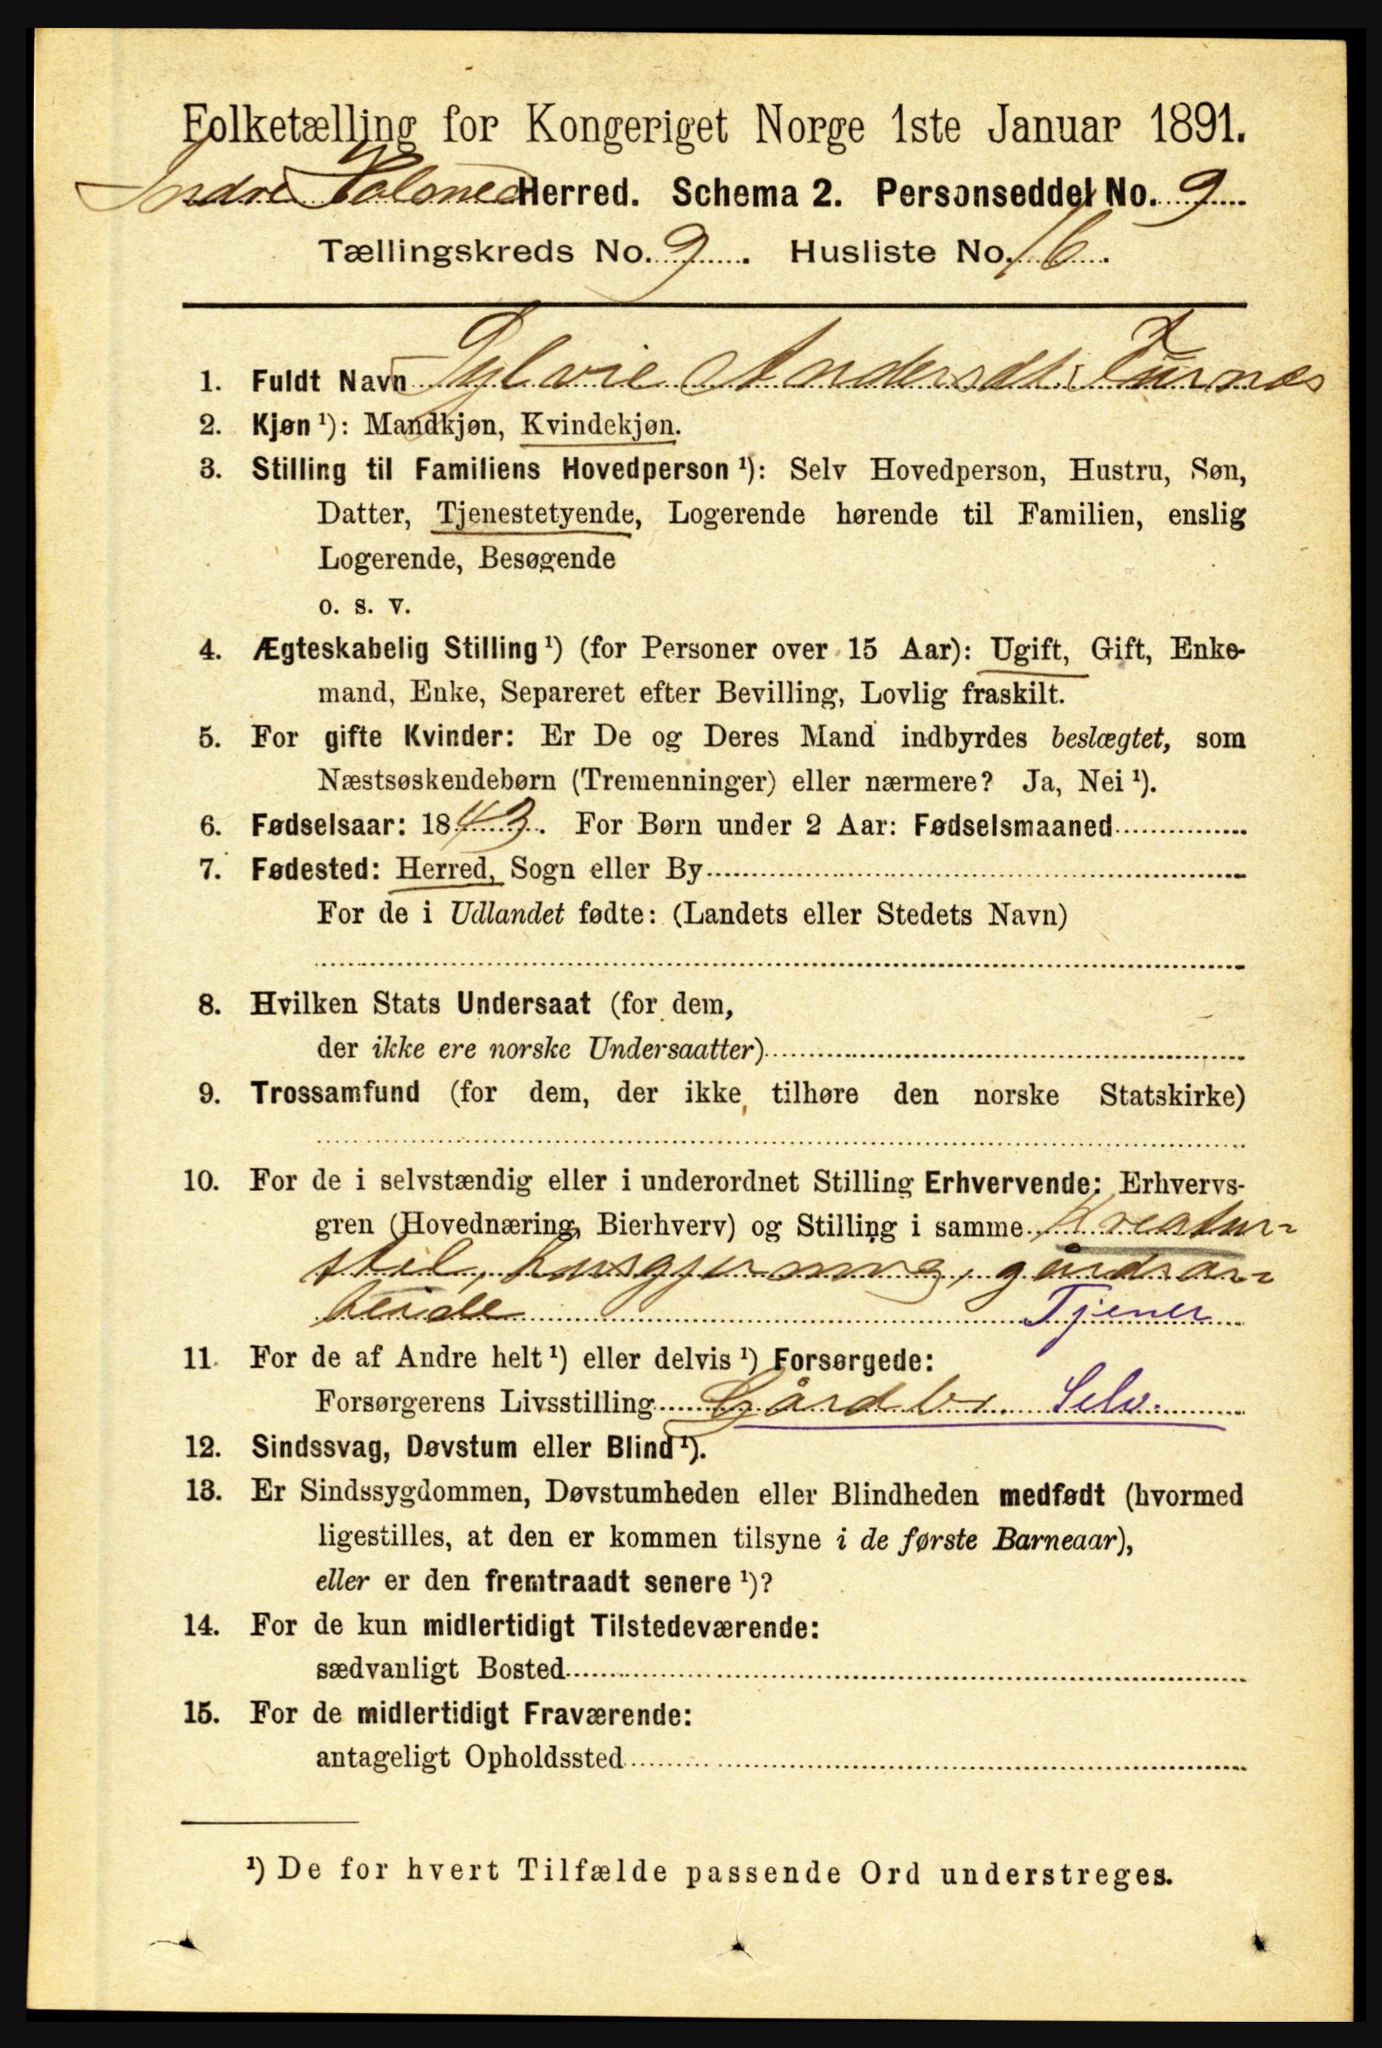 Folketælling for Kongeriget Norge 1ste Januar 1891.
Indre Holmedal Herred. Schema 2. Personseddel No. 9
Tællingskreds No. 9. Husliste No. 16.
1. Fuldt Navn Sylvie Andersdt. Furnæs
2. Kjøn ¹): Mandkjøn, Kvindekjøn.
3. Stilling til Familiens Hovedperson ¹): Selv Hovedperson, Hustru, Søn,
Datter, Tjenestetyende, Logerende hørende til Familien, enslig
Logerende, Besøgende
o. s. v.
4. Ægteskabelig Stilling ¹) (for Personer over 15 Aar): Ugift, Gift, Enke-
mand, Enke, Separeret efter Bevilling, Lovlig fraskilt.
5. For gifte Kvinder: Er De og Deres Mand indbyrdes beslægtet, som
Næstsøskendebørn (Tremenninger) eller nærmere? Ja, Nei ¹).
6. Fødselsaar: 1843. For Børn under 2 Aar: Fødselsmaaned
7. Fødested: Herred, Sogn eller By
For de i Udlandet fødte: (Landets eller Stedets Navn)
8. Hvilken Stats Undersaat (for dem,
der ikke ere norske Undersaatter)
9. Trossamfund (for dem, der ikke tilhøre den norske Statskirke)
10. For de i selvstændig eller i underordnet Stilling Erhvervende: Erhvervs-
gren (Hovednæring, Bierhverv) og Stilling i samme Kreatur-
stel, husgjerning, gårdsar-
beide Tjener
11. For de af Andre helt ¹) eller delvis ¹) Forsørgede:
Forsørgerens Livsstilling Gårdbr. Selv.
12. Sindssvag, Døvstum eller Blind ¹).
13. Er Sindssygdommen, Døvstumheden eller Blindheden medfødt (hvormed
ligestilles, at den er kommen tilsyne i de første Barneaar),
eller er den fremtraadt senere ¹)?
14. For de kun midlertidigt Tilstedeværende:
sædvanligt Bosted
15. For de midlertidigt Fraværende:
antageligt Opholdssted
¹) De for hvert Tilfælde passende Ord understreges.